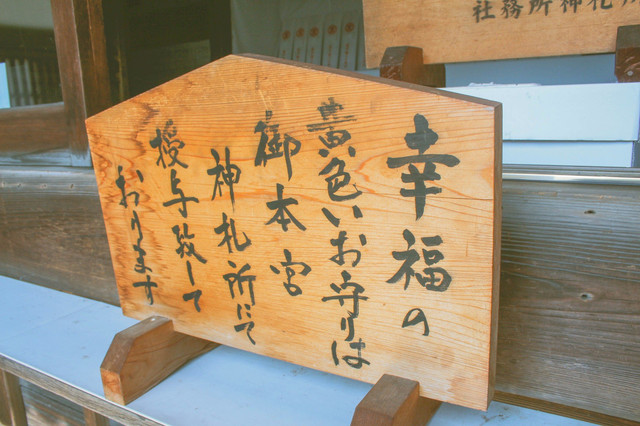 幸福の
黄色いお守りは
御本宮
神札所にて
授与致して
おります
社務所神札